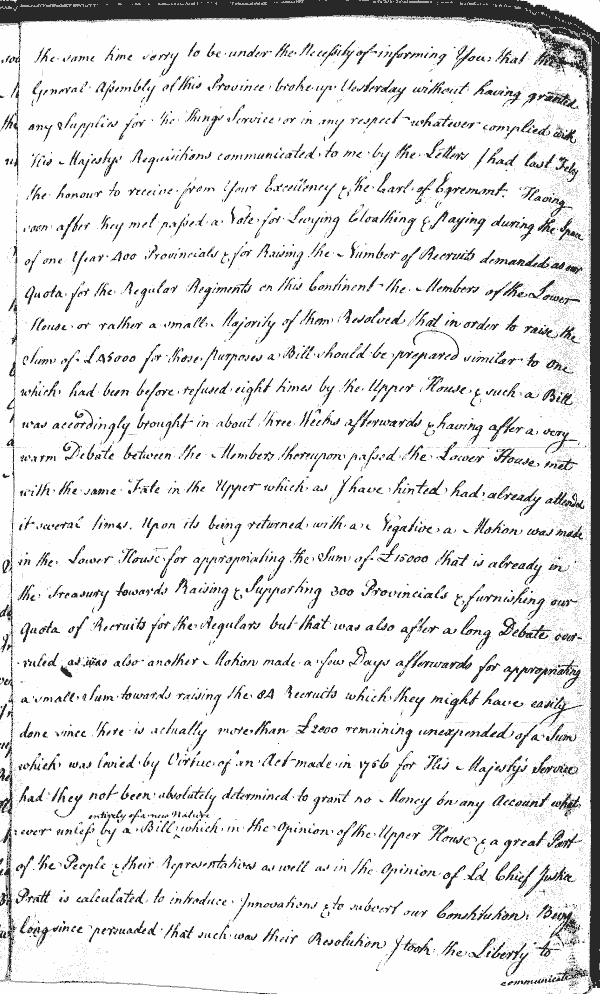 the same time sorry to be under the Necessity of informing You that the
General Assembly of this Province broke up Yesterday without having granted
any Supplies for the King's Service or in any respect whatever complied with
His Majestys Requisitions communicated to me by the Letters I had last Feby
the honour to receive from Your Excellency & the Earl of Egremont. Having
soon after they met passed a Vote for Levying Cloathing & Paying during the Space
of one Year 400 Provincials & for Raising the Number of Recruits demanded as our
Quota for the Regular Regiments on this Continent the Members of the Lower
House or rather a small Majority of them Resolved that in order to raise the
Sum of £45000 for those purposes a Bill should be prepared similar to one
which had been before refused eight times by the Upper House & such a Bill
was accordingly brought in about three Weeks afterwards & having after a very
warm Debate between the Members thereupon passed the Lower House met
with the same Fate in the Upper which as I have hinted had already attended
it several times. Upon its being returned with a Negative a Motion was made
in the Lower House for appropriating the Sum of £15000 that is already in
the Treasury towards Raising & Supporting 300 Provincials & furnishing our
Quota of Recruits for the Regulars but that was also after a long Debate over-
ruled as was also another Motion made a few Days afterwards for appropriating
a small Sum towards raising the 84 Recruits which they might have easily
done since there is actually more than £2000 remaining unexpended of a Sum
which was levied by Virtue of an Act made in 1756 for His Majesty's Service
had they not been absolutely determined to grant no Money on any Account what
entirely of a new Nature
ever unless by a Bill which in the Opinion of the Upper House & a great Part
of the People & their Representatives as well as in the Opinion of Ld Chief Justice
Pratt is calculated to introduce Innovations & to subvert our Constitution. Being
long since persuaded that such was their Resolution I took the Liberty to
communicate